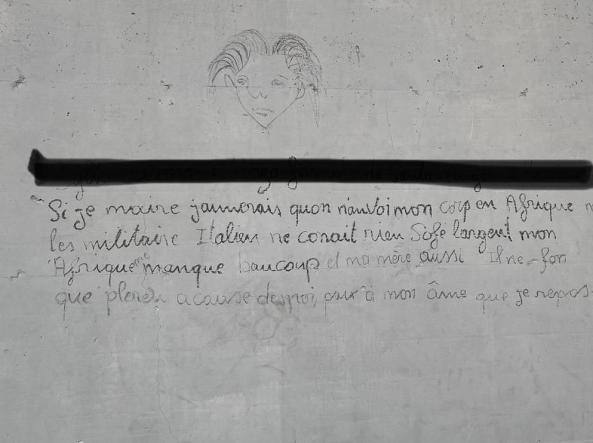 Si je maire jaimerais quon n'anvoi mon corp en Afrique
les militaire Italien ne conait rien Sofe largent mon
Afrique me manque baucoup et ma mère aussi Il ne fon
que pleren acause de moi, paix à mon âme que je repos